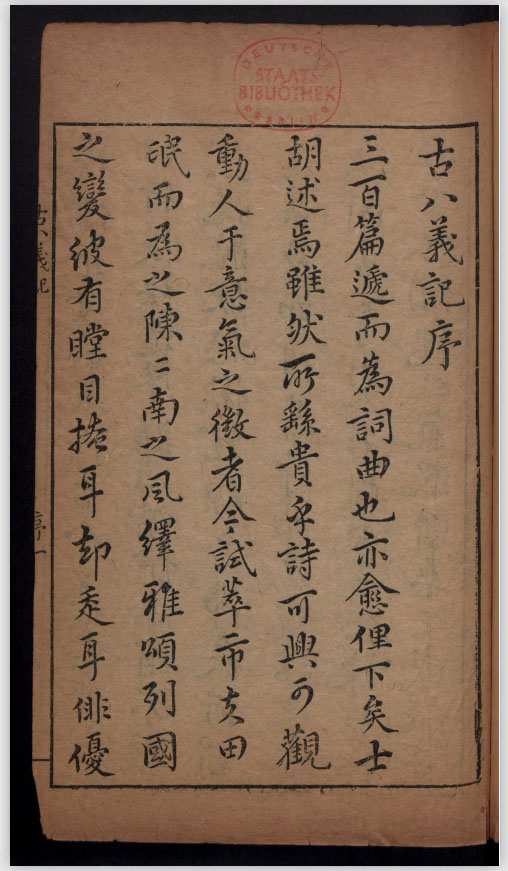 古八義記序
三百篇遞而為詞曲也亦愈俚下矣士
胡述焉雖然所繇貴乎詩可興可觀
動人于意氣之微者今試萃市夫田
氓而為之陳二南之風繹雅頌列國
之變彼有瞠目掩耳却走耳俳優
古八義記
序一
DEUTSCHE
STAATS-
BIBLIOTHEK
BERLIN